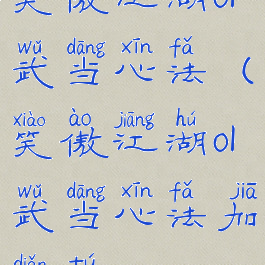 笑傲江湖01
wǔ dāng xīn fǎ
武当心法（
xiào ào jiāng hú
笑傲江湖01
wǔ dāng xīn fǎ jiā
武当心法加
diǎn tú